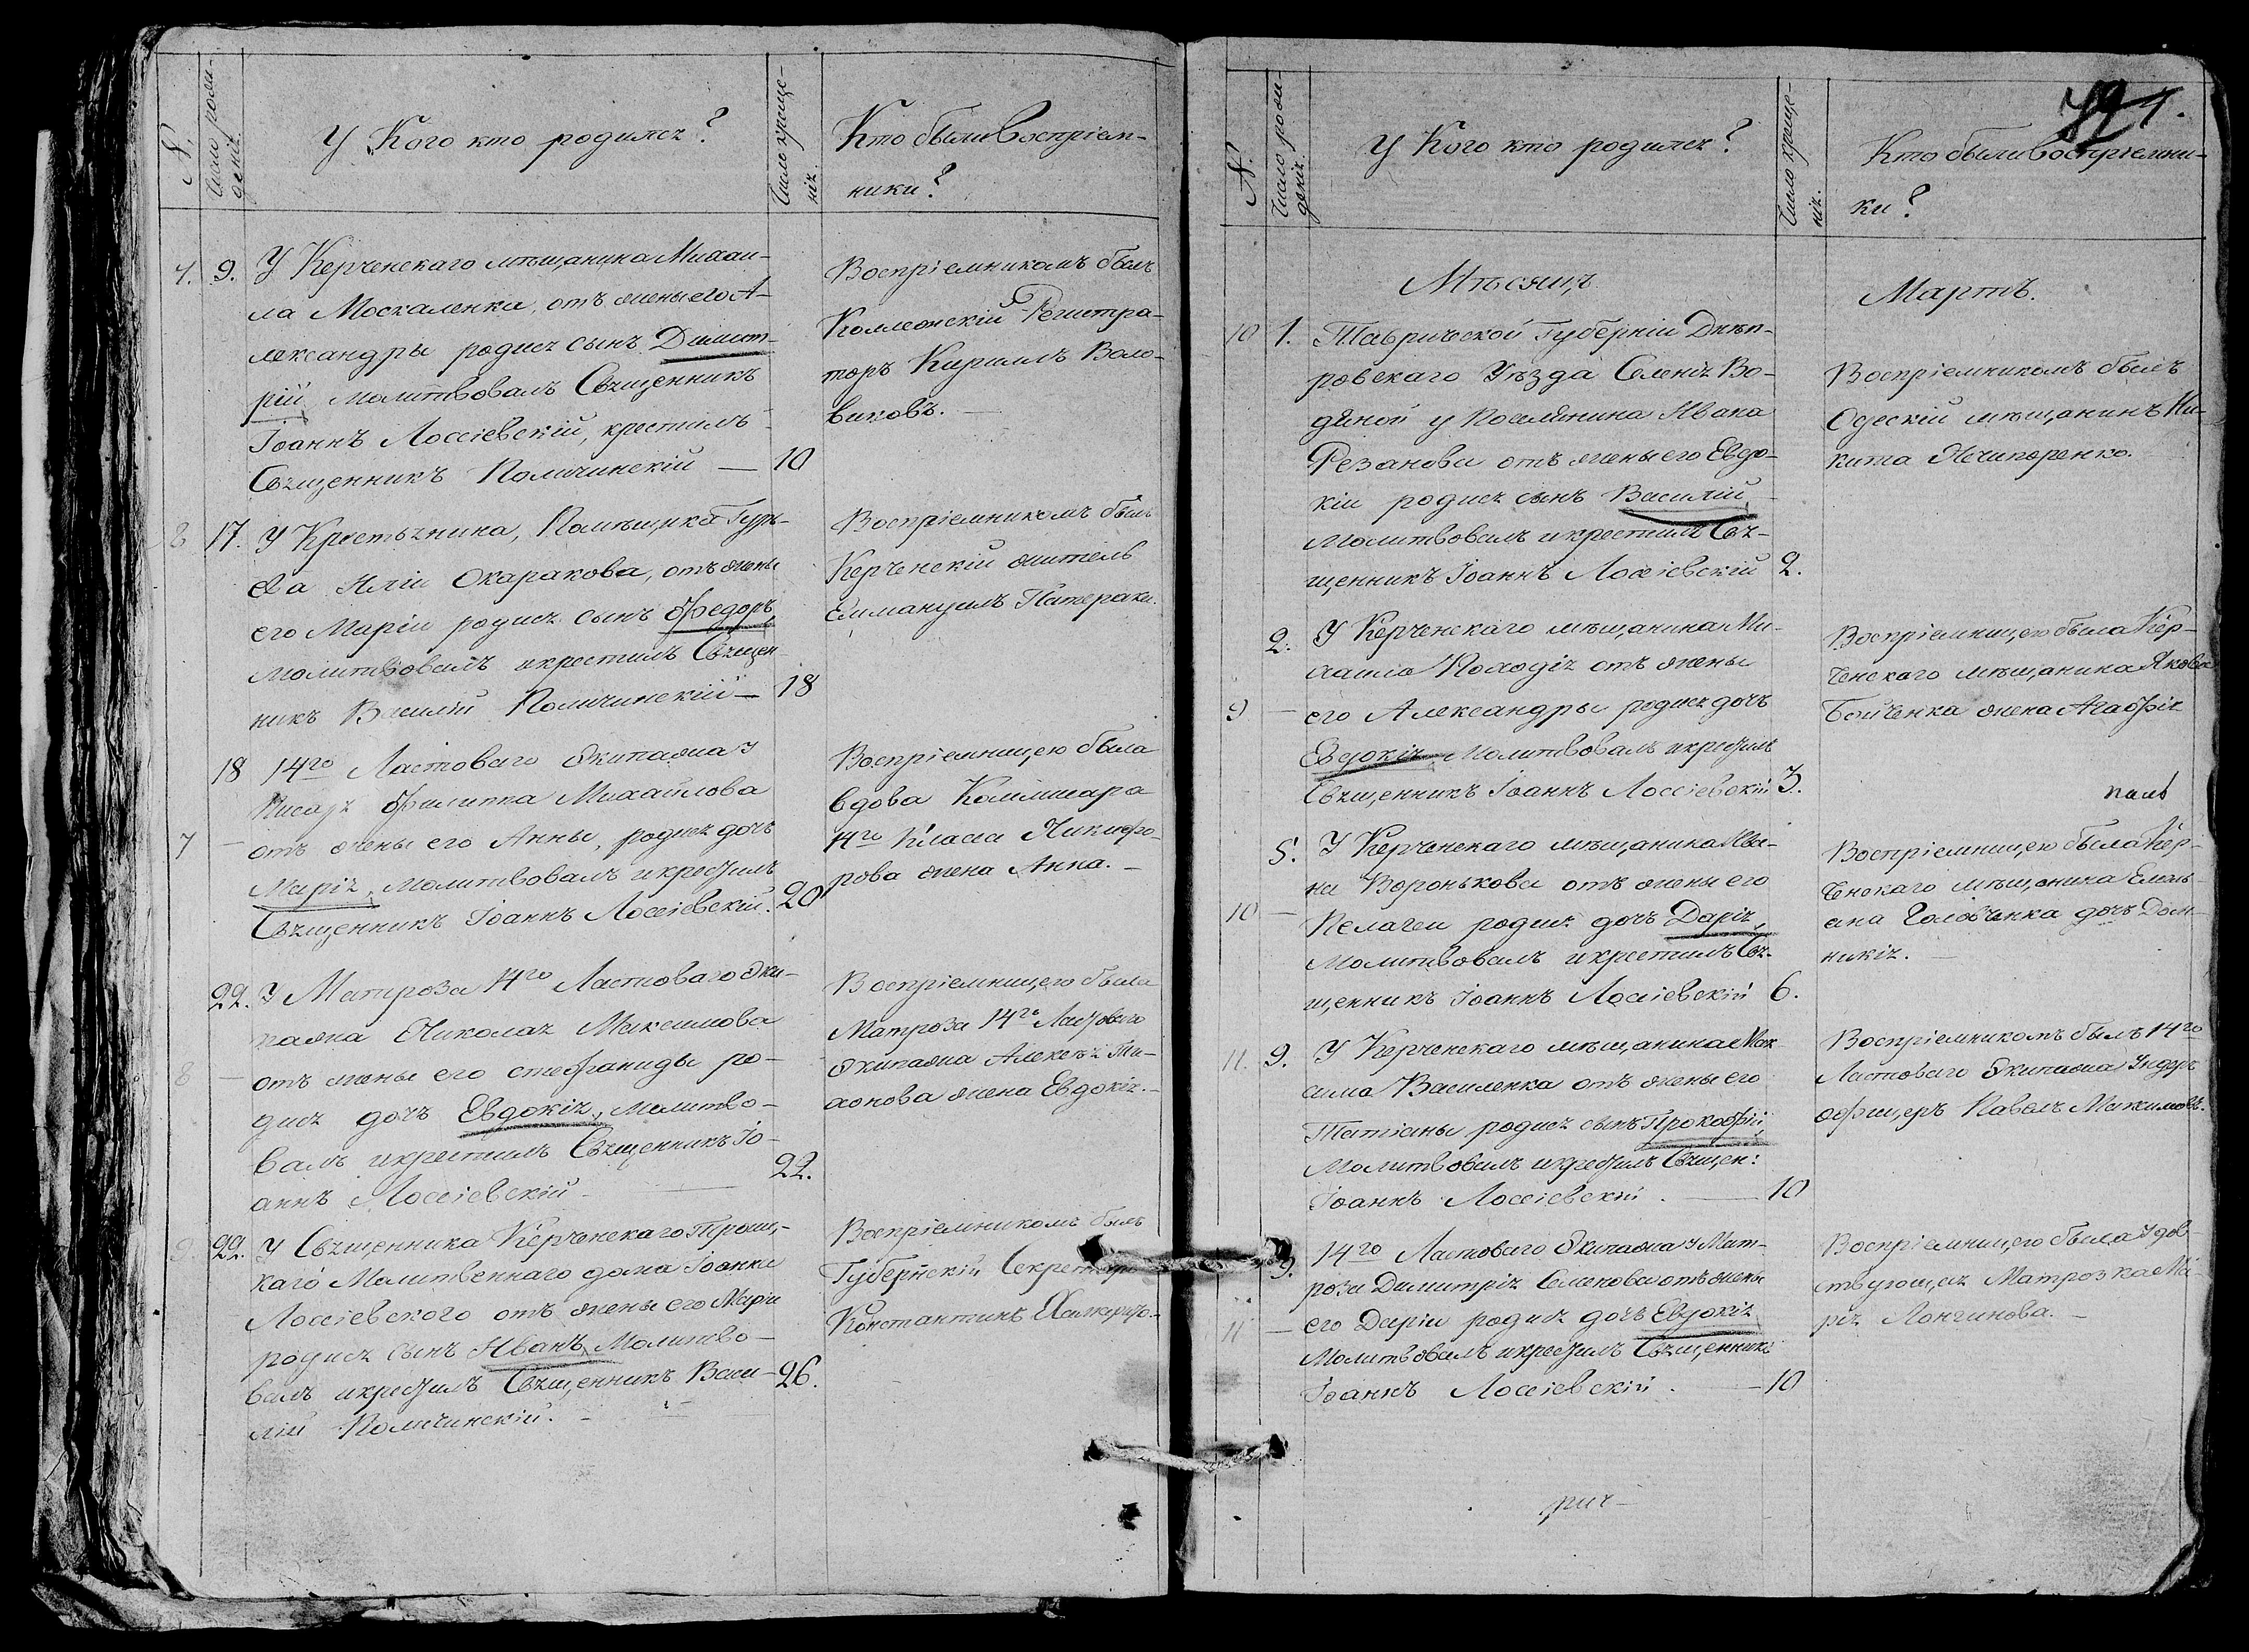 №.
Число рожде-
нія.
У Кого кто родился?
Число креще-
нія.
Кто были Воспріем-
ники?
7. 9. У Керченскаго мѣщанина Михаи-
ла Москаленка, отъ жены его А-
лександры родися сынъ Димит-
рій молитвовалъ Священникъ
Іоаннъ Лоссіевскій, крестилъ
Священникъ Поличинскій — 10
Воспріемникомъ былъ
Коллежскій Регистра-
торъ Кириллъ Воло-
виковъ.
8 17. У Крестьянина, Помѣщика Гурь-
ева Иліи Окаракова, отъ жены
его Маріи родися сынъ Ѳедоръ,
молитвовалъ и крестилъ Священ-
никъ Василій Поличинскій — 18
Воспріемникомъ былъ
Керченскій житель
Еммануилъ Патераки.
18 14го Ластоваго Экипажа у
Писаря Филиппа Михайлова
7 — отъ жены его Анны, родися дочь
Марія, молитвовалъ и крестилъ
Священникъ Іоаннъ Лоссіевскій. 20
Воспріемницею была
вдова Коммисара
14го Класса Никифо-
рова жена Анна. —
22. У Матроза 14го Ластоваго Эки-
пажа Николая Максимова
8 — отъ жены его Стефаниды ро-
дися дочь Евдокія, молитво-
валъ и крестилъ Священникъ Іо-
аннъ Лоссіевскій — 22.
Воспріемницею была
Матроза 14го Ластоваго
Экипажа Алексѣя Ти-
хонова жена Евдокія. —
9. 22. У Священника Керченскаго Троиц-
каго Молитвеннаго дома Іоанна
Лоссіевскаго отъ жены его Маріи
родися сынъ Иванъ, Молитво-
валъ и крестилъ Священникъ Васи- — 26.
лій Поличинскій. —
Воспріемникомъ былъ
Губернскій Секретарь
Константинъ
№.
Число рожде-
нія.
У Кого кто родился?
Число креще-
нія.
Кто были воспріемни-
ки?
Мѣсяцъ
Мартъ.
10 1. Таврической Губерніи Днѣп-
ровскаго Уѣзда Селенія Во-
дяной у Поселянина Ивана
Резанова отъ жены его Евдо-
кіи родися сынъ Василій,
Молитвовалъ и крестилъ Свя-
щенникъ Іоаннъ Лоссіевскій 2.
Воспріемникомъ былъ
Одескій мѣщанинъ Ни-
кита Нечипоренко.
2. У Керченскаго мѣщанина Ми-
хаила Колодія отъ жены
9 — его Александры родися дочь
Евдокія, Молитвовалъ и крестилъ
Священникъ Іоаннъ Лоссіевскій 3.
Воспріемницею была Кер-
ченскаго мѣщанина Якова
Бойченка жена Агафія
5. У Керченскаго мѣщанина Ива-
на Воронькова отъ жены его
10 — Пелагеи родися дочь Дарія,
Молитвовалъ и крестилъ Свя-
щенникъ Іоаннъ Лоссіевскій 6.
Воспріемницею была Кер-
ченскаго мѣщанина Емель-
яна Головченка дочь Дом-
никія.
11. 9. У Керченскаго мѣщанина Мак-
сима Василенка отъ жены его
Татіаны родися сынъ Прокофій,
Молитвовалъ и крестилъ Священ:
Іоаннъ Лоссіевскій. — 10
Воспріемникомъ былъ 14го
Ластоваго Экипажа Ундеръ
офицеръ Павелъ Максимовъ.
9. 14го Ластоваго Экипажа у Мат-
роза Димитрія Семенова отъ жены
11 — его Даріи родися дочь Евдокія
Молитвовалъ и крестилъ Священникъ
Іоаннъ Лоссіевскій. — 10
Воспріемницею была Удов-
ствующая Матрозка Ма-
рія Лончинова. —
рич-